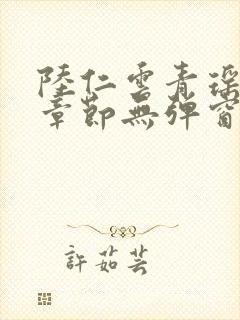 陸仁雲青瑤
章節無彈窗
許茹芸